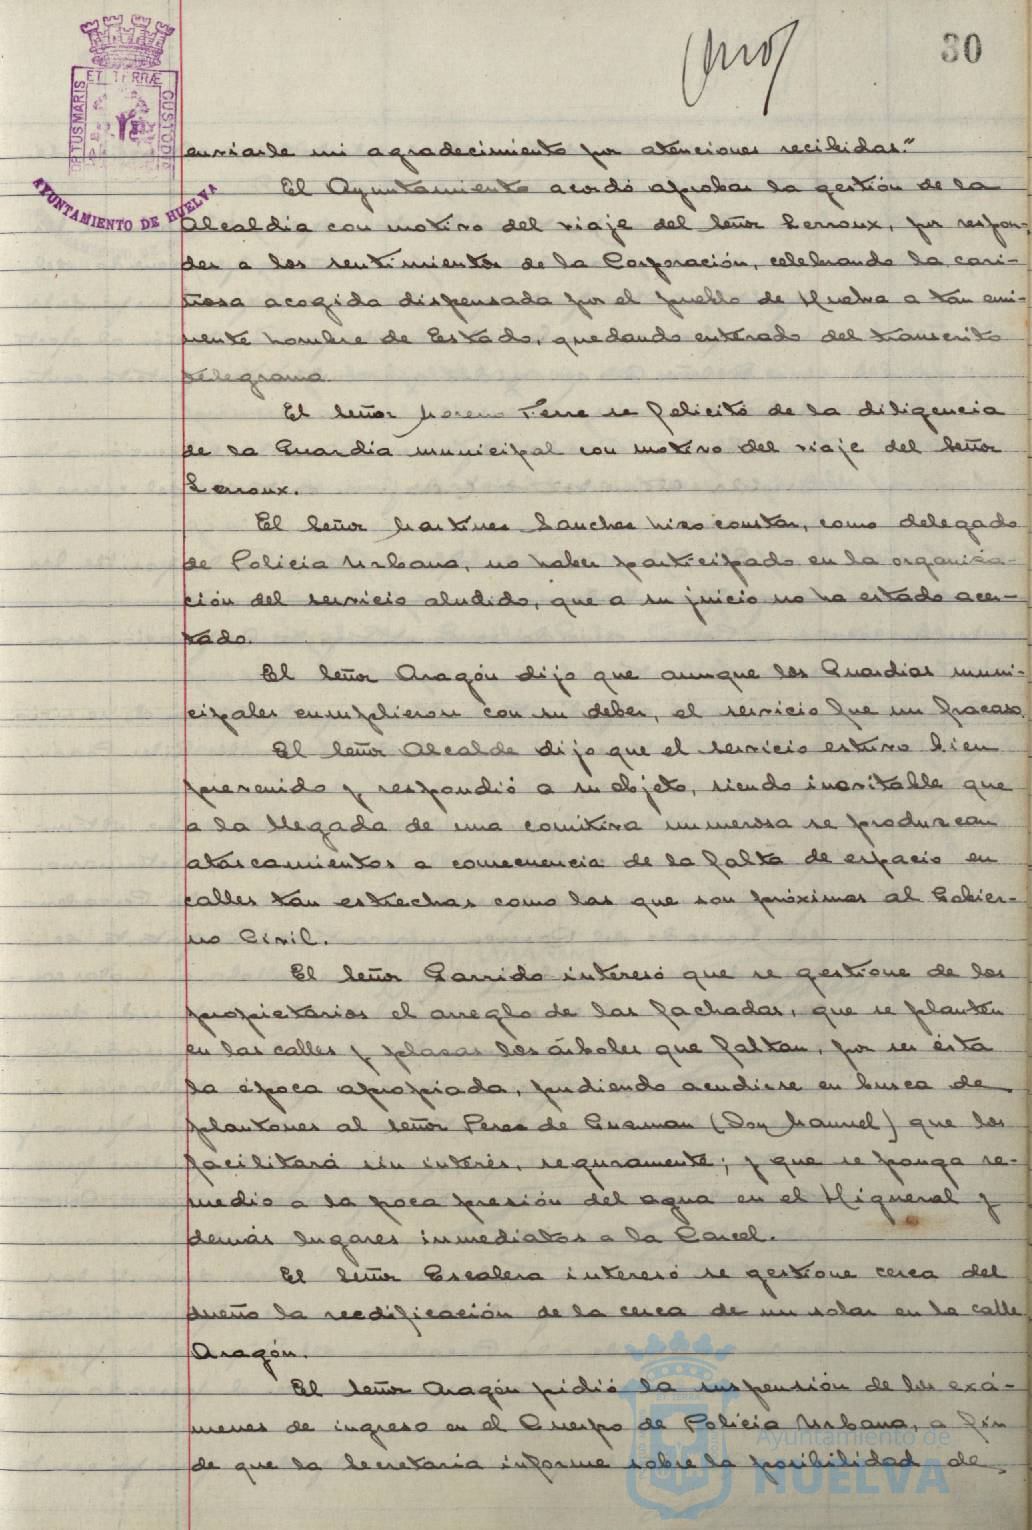 30
PORTUS MARIS ET TERRÆ CUSTODIA
AYUNTAMIENTO DE HUELVA
enviarle mi agradecimiento por atenciones recibidas."
El Ayuntamiento acordó aprobar la gestión de la
Alcaldía con motivo del viaje del Señor Lerroux, por respon-
der a los sentimientos de la Corporación, celebrando la cari-
ñosa acogida dispensada por el pueblo de Huelva a tan emi-
nente hombre de Estado, quedando enterado del transcrito
telegrama.
El Señor Moreno Terre se felicitó de la diligencia
de la Guardia municipal con motivo del viaje del Señor
Lerroux.
El Señor Martínez Sanchez hizo constar, como delegado
de Policía Urbana, no haber participado en la organiza-
ción del servicio aludido, que a su juicio no ha estado acer-
tado.
El Señor Aragón dijo que aunque los Guardias muni-
cipales cumplieron con su deber, el servicio fue un fracaso.
El Señor Alcalde dijo que el servicio estuvo bien
prevenido y respondió a su objeto, siendo inevitable que
a la llegada de una comitiva numerosa se produzcan
atascamientos a consecuencia de la falta de espacio en
calles tan estrechas como las que son próximas al Gobier-
no Civil.
El Señor Garrido interesó que se gestione de los
propietarios el arreglo de las fachadas, que se planten
en las calles y plazas los árboles que faltan, por ser ésta
la época apropiada, pudiendo acudirse en busca de
plantones al Señor Perez de Guzman (Don Manuel) que los
facilitará sin interés, seguramente; y que se ponga re-
medio a la poca presión del agua en el Higueral y
demás lugares inmediatos a la Carcel.
El Señor Escalera interesó se gestione cerca del
dueño la reedificación de la cerca de un solar en la calle
Aragón.
El Señor Aragón pidió la suspensión de los exá-
menes de ingreso en el Cuerpo de Policía Urbana, a fin
de que la Secretaria informe sobre la posibilidad de
Ayuntamiento de
HUELVA